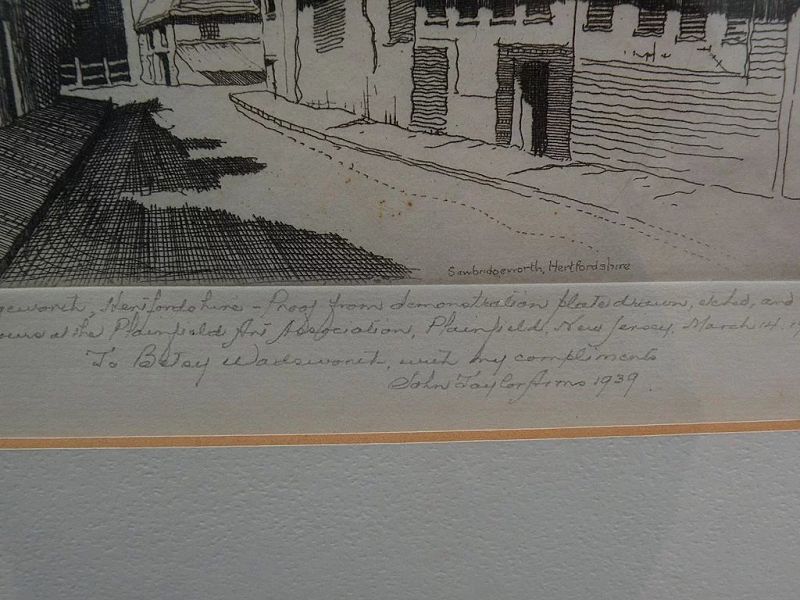 Sawbridgeworth, Hertfordshire
geworth, Hertfordshire - Proof from demonstration plate drawn, etched, and
ours at the Plainfield Art Association, Plainfield, New Jersey, March 14, 1
To Betsy Wadsworth, with my compliments
John Taylor Arms 1939.